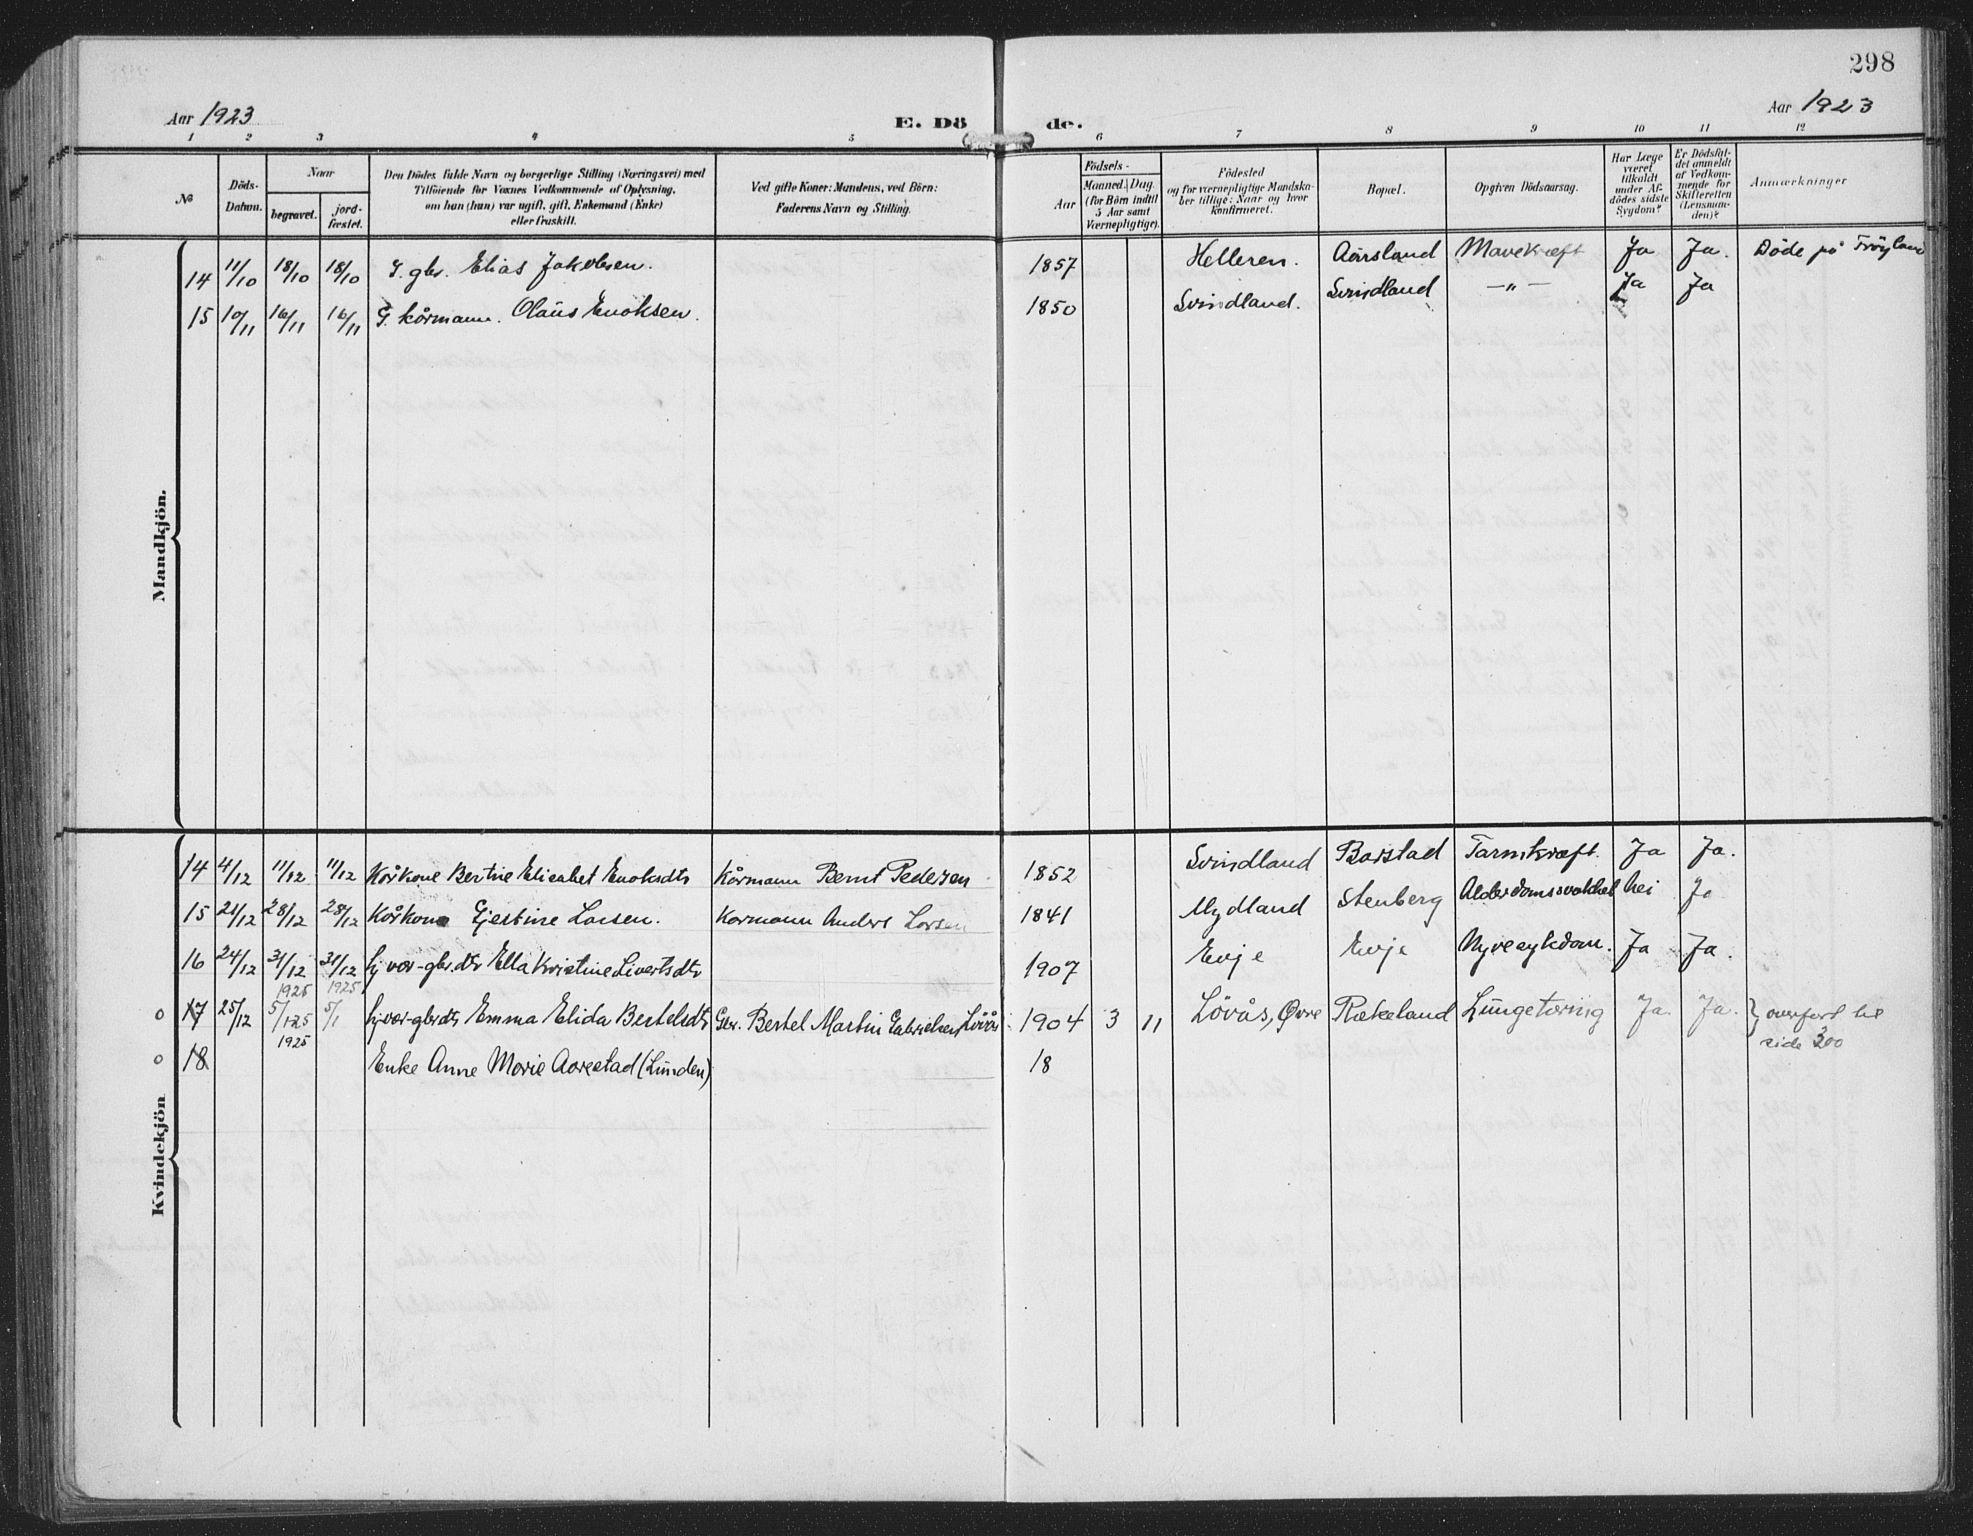 298
Aar 1923
E. Dö de.
Aar 1923
1 2 3 4 5 6 7 8 9 10 11 12
№
Döds-Datum.
Naar
begravet.
jord-fæstet.
Den Dödes fulde Navn og borgerlige Stilling (Næringsvei) med
Tilföiende for Voxnes Vedkommende af Oplysning,
om han (hun) var ugift, gift, Enkemand (Enke)
eller fraskilt.
Ved gifte Koner: Mandens, ved Börn:
Faderens Navn og Stilling.
Födsels-
Aar
Maaned. Dag
(for Börn indtil
5 Aar samt
Værnepligtige).
Födested
og for værnepligtige Mandska-
ber tillige: Naar og hvor
konfirmeret.
Bopæl.
Opgiven Dödsaarsag.
Har Læge
været
tilkaldt
under Af-
dödes sidste
Sygdom?
Er Dödsfal-
det anmeldt
af Vedkom-
mende for
Skifteretten
(Lensman-
den)?
Anmærkninger
Mandkjön.
14 11/10 18/10 18/10 G. gbr. Elias Jakobsen. 1857 Helleren. Aarsland Mavekræft Ja Ja. Döde på Tröyland
15 10/11 16/11 16/11 G. kårmann. Olaus Enoksen. 1850 Svindland. Svindland —"— Ja Ja
Kvindekjön
14 4/12 11/12 11/12 Kårkone Bertine Elisabet Enoksdtr Kårmann Bernt Pedersen 1852 Svindland Barstad Tarmkræft. Ja Ja.
15 21/12 28/12 28/12 Kårkone Gjestine Larsen. Karmann Anders Larsen 1841 Mydland Stenberg Alderdomssvakhet Nei Ja
16 24/12 31/12 31/12 hj.vær-gbr.dtr Ella Kristine Sivertsdtr 1907 Evje Evje Nyresykdom. Ja Ja.
1925 1925
o 17 25/12 5/1-25 5/1 hj.vær-gbrdtr Emma Elida Bertelsdtr Gbr. Bertel Martin Gabrielsen Lövås 1904 3 11 Lövås, Øvre Rækeland Lungetæring Ja. Ja. } overført til
1925
side 300
o 18 Enke Anne Marie Aarestad (Lunden) 18